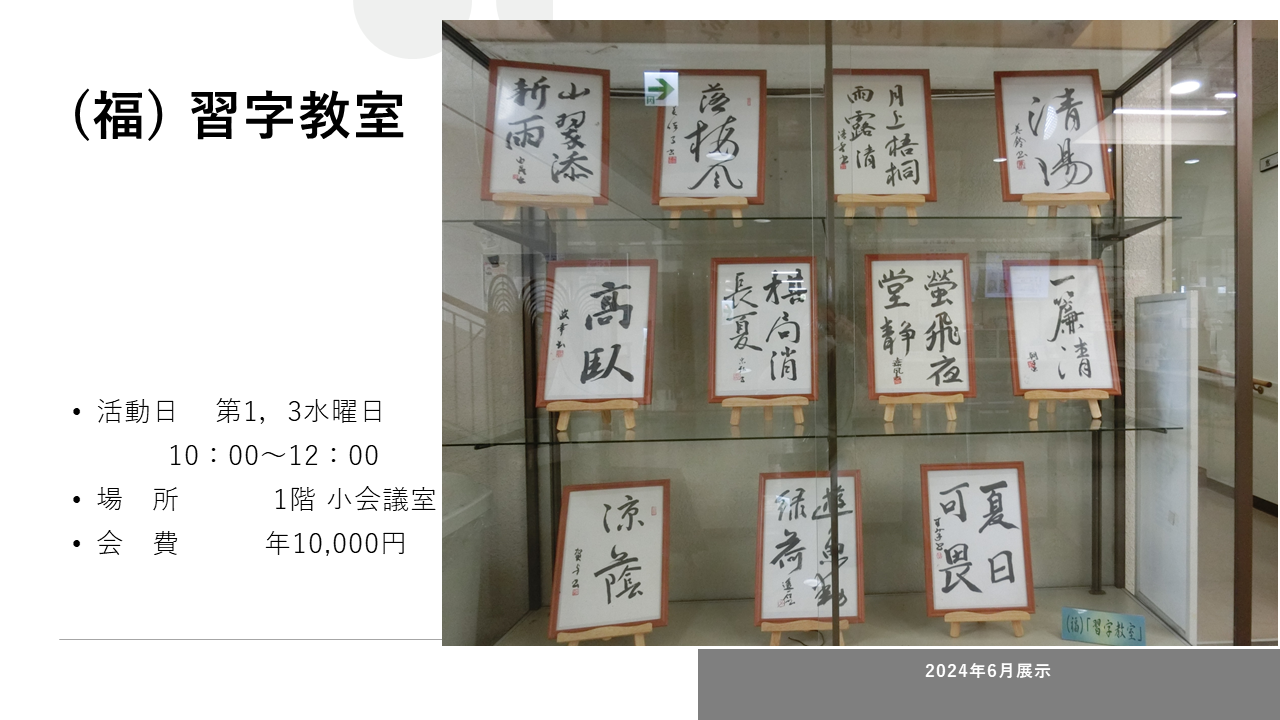 (福) 習字教室
• 活動日　第1，3水曜日
10：00～12：00
• 場　所　1階 小会議室
• 会　費　年10,000円
山翠添
新雨
落梅风
月上梧桐
雨露清
清湯
高臥
棋局消
長夏
螢飛夜
堂静
一簾清
涼蔭
遊魚動
緑荷
夏日
可畏
(福)「習字教室」
2024年6月展示